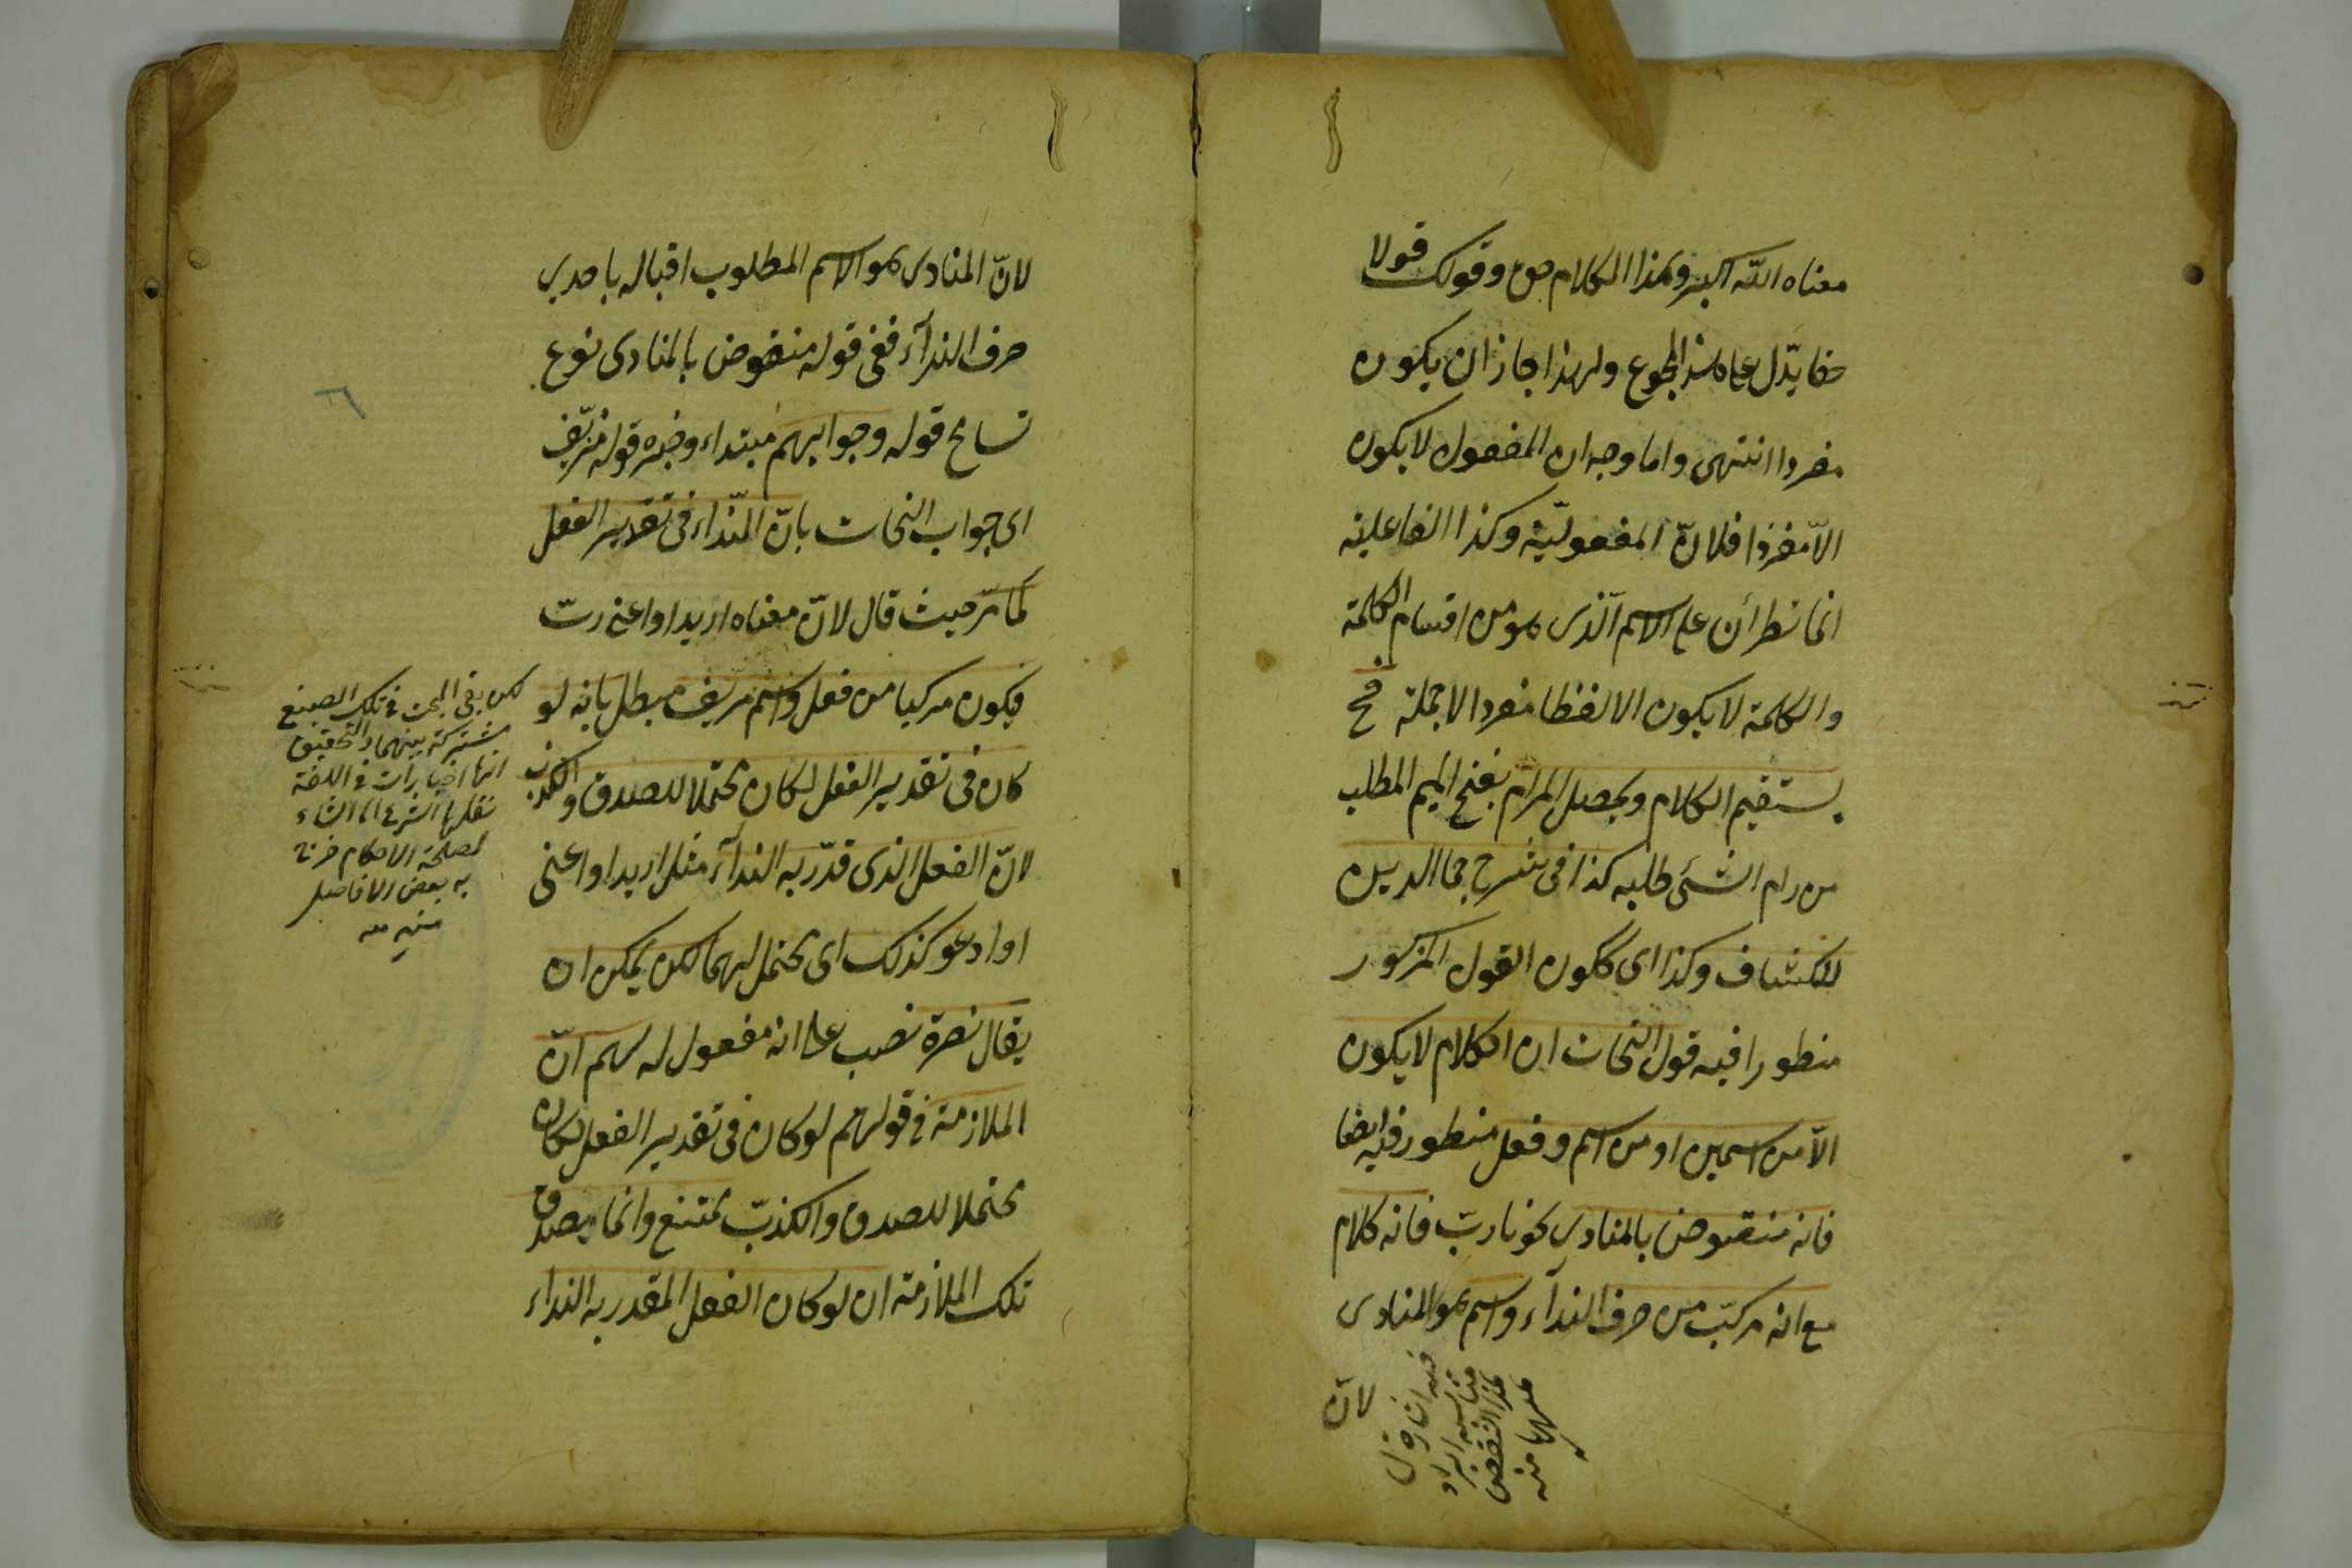 معناه الله اكبر وهذا الكلام حق وقولك قولا
حقا يدّل على هذا المجموع ولهذا جاز ان يكون
مفردا انتهى واما وجه ان المفعول لا يكون
الاّ مفردا فلانّ المفعوليّة وكذا الفاعلية
انما تطرأن على الاسم الّذى هو من اقسام الكلمة
والكلمة لا يكون الا لفظا مفردا لا جملة فح
يستقيم الكلام ويحصل المرام بفتح الميم المطلب
من رام الشئ طلبه كذا فى شرح جما الدين
للكشاف وكذا اى ككون القول المزكور
منطورا فيه قول النحات ان الكلام لا يكون
الاّ من اسمين او من اسم وفعل منطور فيه ايضا
فانه منقوض بالمنادى نحو يا ربّ فانه كلام
مع انه مركبّ من حرف الندآء واسم هو المنادى
لانّ
فيه اشارة الى
مناسبة ايراد
هذا النقض
ههنا منه
لانّ المنادى هو الاسم المطلوب اقباله باحدى
حرف الندآء ففى قوله منقوض بالمنادى نوع
تسامح قوله وجوابهم مبتداء وخبره قوله مزيّف
اى جواب النحات بانّ النّداء فى تقدير الفعل
كما مّر حيث قال لانّ معناه اريد او اعنى ربّ
فيكون مركبا من فعل واسم مزيف مبطل بانه لو
كان فى تقدير الفعل لكان محتملا للصدق والكذب
لانّ الفعل الذى قدّر به الندآء مثل اريد او اعنى
او ادعو كذلك اى يحتمل لهما لكن يمكن ان
يقال نصرة نصب على انه مفعول له لهم انّ
الملازمة فى قولهم لو كان فى تقدير الفعل لكان
محتملا للصدق والكذبّ ممتنع وانما يصدق
تلك الملازمة ان لو كان الفعل المقدر به النداء
لكن بقى البحث فى تلك الصيغ
مشتركة بينهما والتحقيق
انها اخبارات فى اللغة
نقلها الشرع الى انشاء
لمصلحة الاحكام
به بعض الافاضل
منه
٦